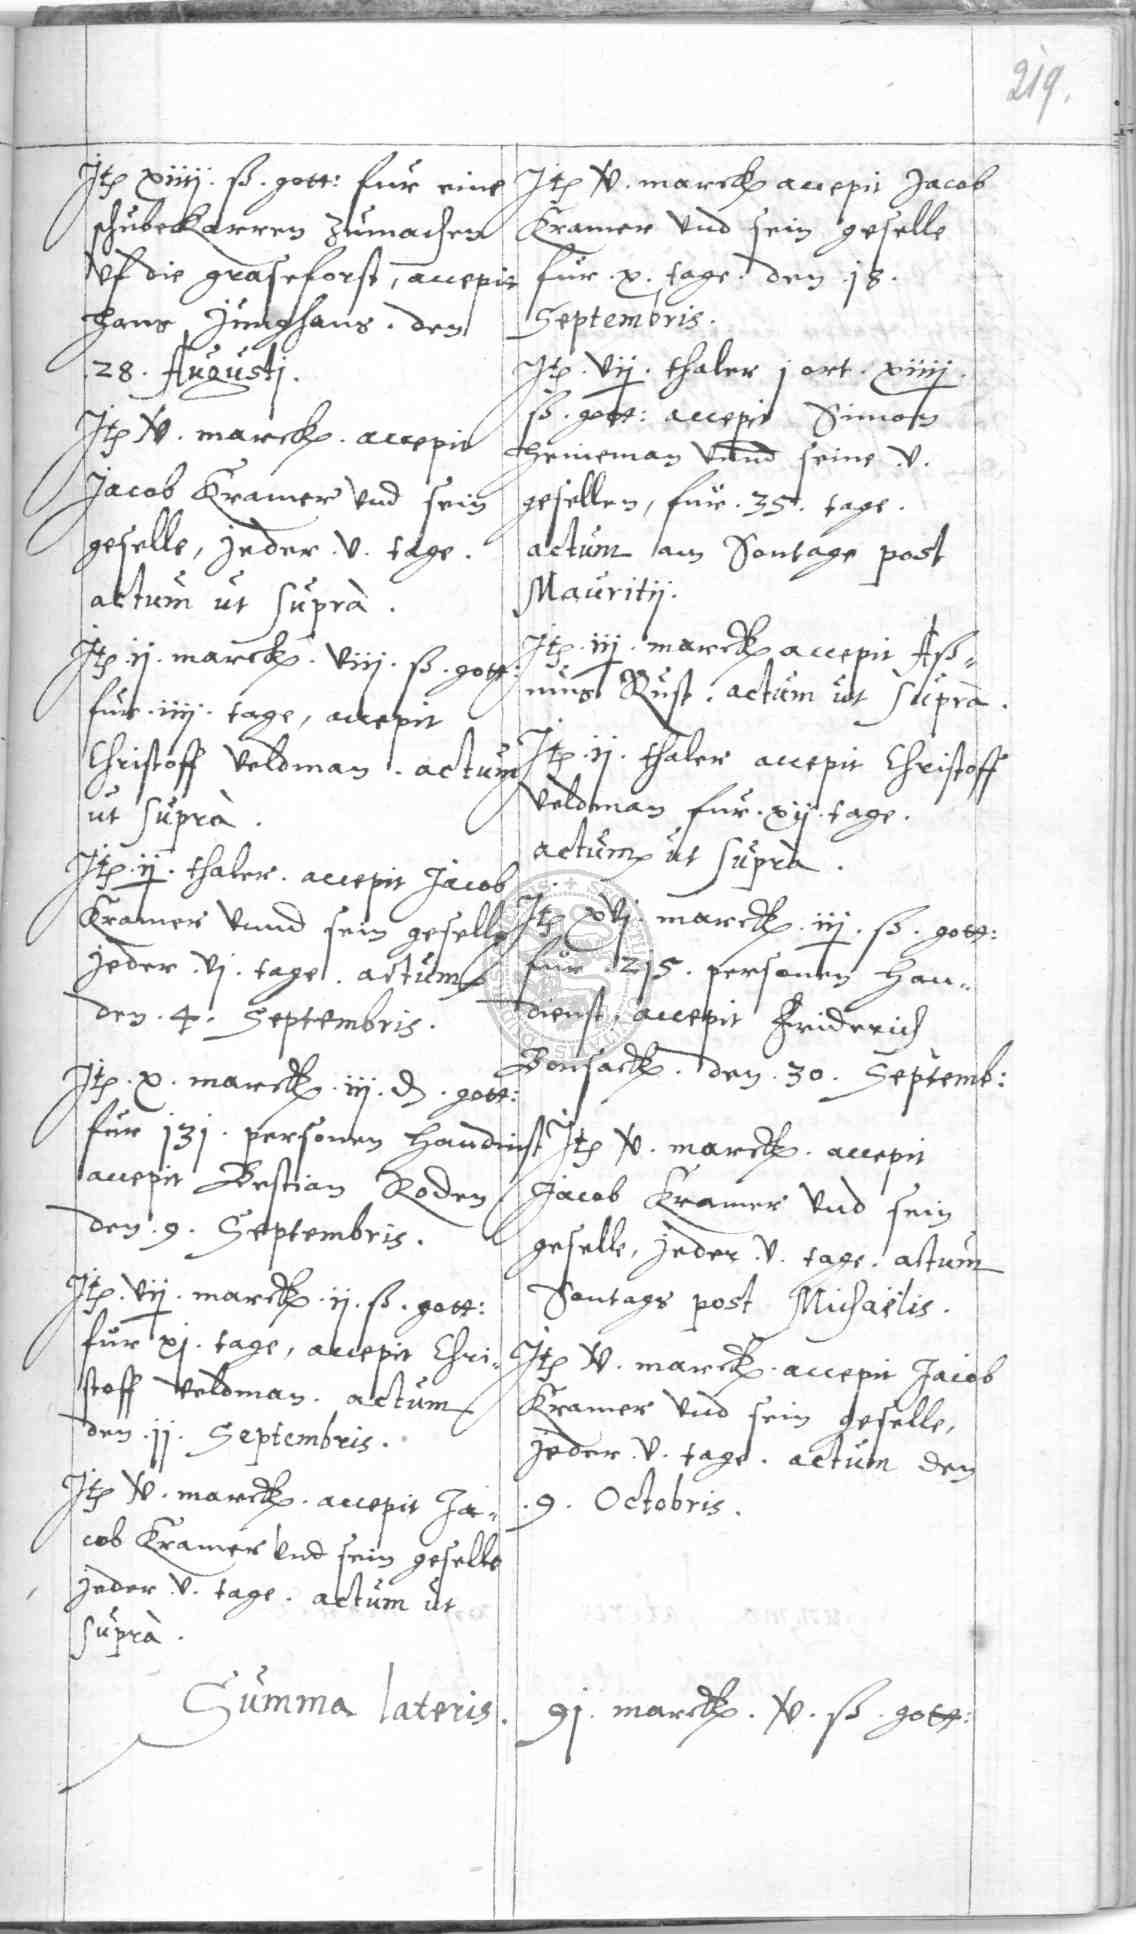 219.
Jtem xiiij. ß. gott: fur eine
schubekarren zumachen
vf die graseforst, accepit
Hans Junghans. den
.28. Augustj.
Jtem v. marck. accepit
Jacob Kramer vnd sein
geselle, jeder .v. tage.
actum ut suprà.
Jtem .ij. marck. viij. ß. gott:
fur .iiij. tage, accepit
Christoff Veldman. actum
ut suprà.
Jtem .ij. thaler. accepit Jacob
Kramer vnnd sein geselle
jeder .vj. tage. actum
den .4. Septembris.
Jtem .x. marck .iij. d. gott:
fur 131. personen Handinst
accepit Bestian Roden
den .9. Septembris.
Jtem .vij. marck .ij. ß. gott:
fur xj. tage, accepit Chri-
stoff Veldman. actum
den .11. Septembris.
Jtem v. marck. accepit Ja-
cob Kramer vnd sein geselle
jeder .v. tage. actum ut
suprà.
Jtem v. marck accepit Jacob
Kramer vnd sein geselle
fur .x. tage. den .18.
Septembris.
Jtem .vij. thaler j ort. xiiij.
ß. gott: accepit Simon
Heineman vnnd seine .v.
gesellen, fur .35. tage.
actum am Sontage post
Mauritij.
Jtem .iij. marck accepit Aß-
mus Rust. actum ut suprà.
Jtem .ij. thaler accepit Christoff
Veldman fur .xij. tage.
actum ut suprà.
Jtem xvj. marck .iij. ß. gott:
fur .215. personen Han-
dienst, accepit Friderich
Bonsack. den .30. Septemb:
Jtem v. marck. accepit
Jacob Kramer vnd sein
geselle, jeder .v. tage. actum
Sontags post Michaëlis.
Jtem v. marck. accepit Jacob
Kramer vnd sein geselle,
jeder .v. tage. actum den
.9. Octobris.
Summa lateris. 91. marck. v. ß. gott: